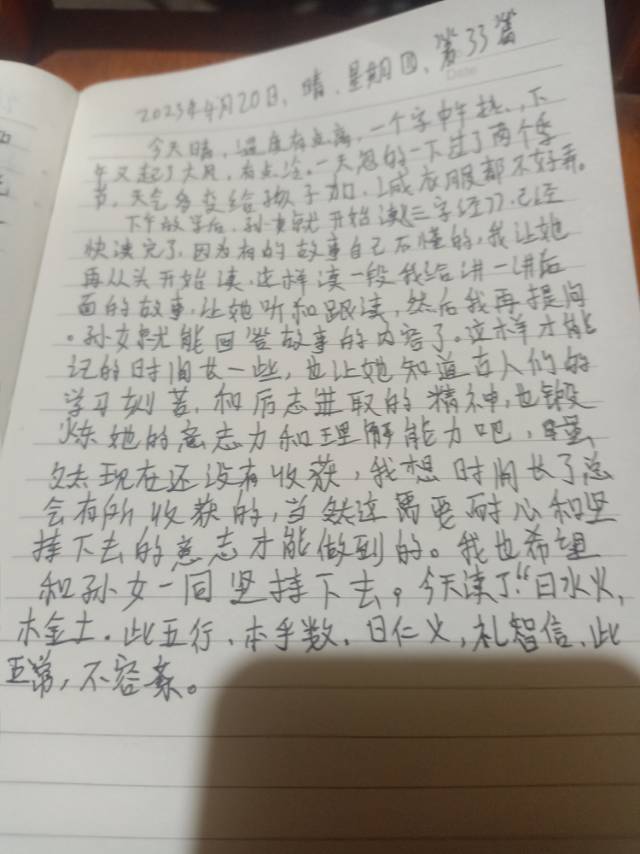 2023年4月20日、晴、星期四、第33篇
Date
今天晴,温度有点高,一个字中午热、下
午又起了大风,有点冷。一天忽的一下过了两个季
节,天气多变给孩子加、减衣服都不好弄。
下午放学后,孙女就开始读《三字经》,已经
快读完了,因为有的故事自己不懂的,我让她
再从头开始读,这样读一段我给讲一讲后
面的故事,让她听和跟读,然后我再提问
。孙女就能回答故事的内容了。这样才能
记的时间长一些,也让她知道古人们的
学习刻苦,和厉志进取的精神,也锻
炼她的意志力和理解能力吧,虽
然现在还没有收获,我想时间长了总
会有所收获的,当然这需要耐心和坚
持下去的意志才能做到的。我也希望
和孙女一同坚持下去。今天读了“曰水火,
木金土.此五行、本乎数.曰仁义,礼智信、此
五常,不容紊。